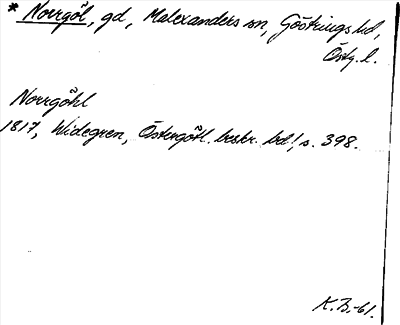 * Norrgöl, gd, Malexanders sn, Göstrings hd,
Östg. l.
Norrgöhl
1817, Widegren, Östergötl. beskr. bd 1, s. 398.
K.B.-61.